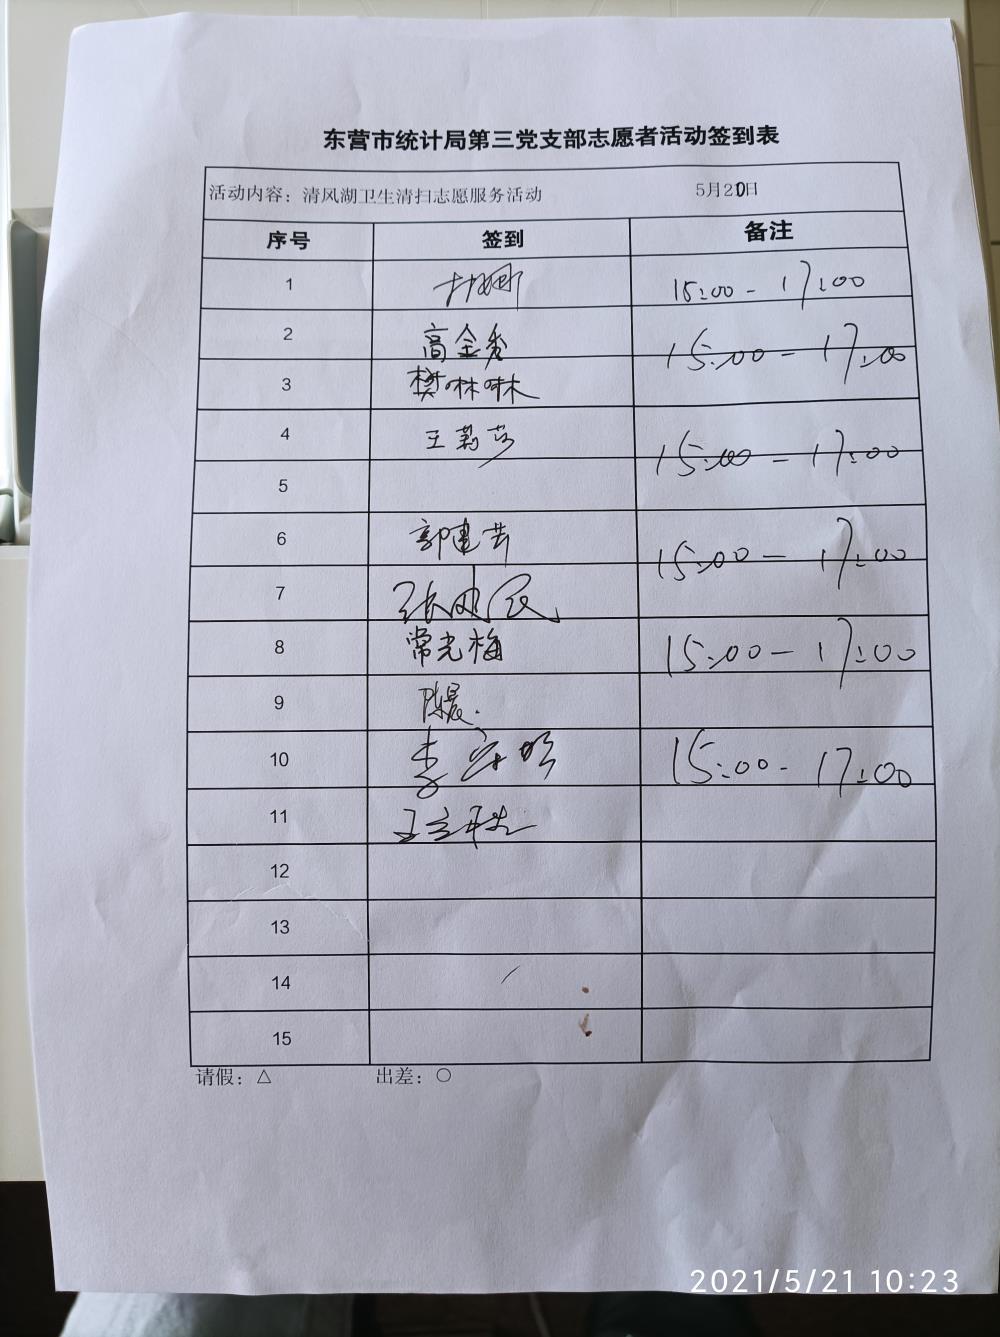 东营市统计局第三党支部志愿者活动签到表
活动内容：清风湖卫生清扫志愿服务活动 5月20日
序号 签到 备注
1 15:00-17:00
2 高金秀
15:00-17:00
3 樊啉啉
4 王莉莎
15:00-17:00
5
6 郭建芸
15:00-17:00
7 张民
8 常光梅 15:00-17:00
9 陈晨.
10 李 15:00-17:00
11 王
12
13
14
15
请假：△ 出差：○
2021/5/21 10:23